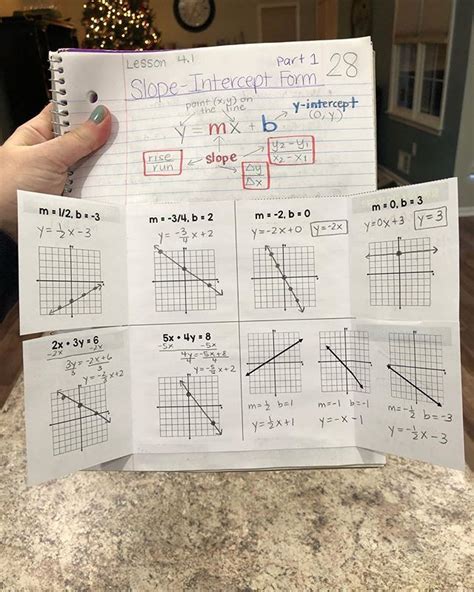 Lesson 4.1
Part 1
28
Slope-Intercept Form
point (x,y) on
the line
y-intercept
(0, y)
y = mx + b
rise
run
slope
y₂ - y₁
x₂ - x₁
Δy
Δx
m = 1/2, b = -3
y = 1/2 x - 3
m = -3/4, b = 2
y = -3/4 x + 2
m = -2, b = 0
y = -2x + 0
y = -2x
m = 0, b = 3
y = 0x + 3
y = 3
2x + 3y = 6
-2x -2x
3y = -2x + 6
3 3
y = -2/3 x + 2
5x + 4y = 8
-5x -5x
4y = -5x + 8
4
y = -5/4 x + 2
m = 1/2 b = 1
y = 1/2 x + 1
m = -1 b = -1
y = -x - 1
m = -1/2 b = -3
y = -1/2 x - 3